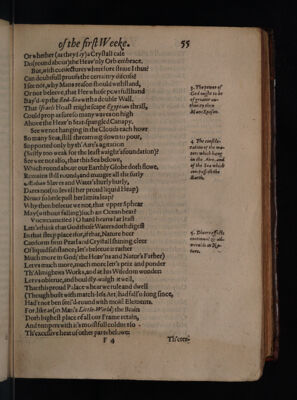 of the first Weeke.
55
Or whether (as they say) a Crystall case
Do (round about) the Heav'nly Orb embrace.
But, with coniectures wherefore striue I thus?
Can doubtfull proofs the certainty discusse?
I see not, why Mans reason should withstand,
Or not beleeve, that He whose powrfull hand
Bay'd-vp the Red-Sea with a double Wall,
That Israels Hoast might scape Egyptian thrall,
Could prop as sure so many waues on high
Above the Heav'ns Star-spangled Canapy.
See we not hanging in the Clouds each howr
So many Seas, still threatning down to pour,
Supported only by th' Airs agitation
(Selfly too weak for the least waighty foundation)?
See we not also, that this Sea belowe,
Which round about our Earthly Globe doth flowe,
Remains still round; and maugre all the surly
Aeolian Slaves and Water's hurly burly,
Dares not (to levell her proud liquid Heap)
Neuer so little past her limits leap?
Why then beleeue we not, that vpper Sphear
May (without falling) such an Ocean bear?
Vncircumcised! O hard hearts! at least
Let's think that God those Waters doth digest
In that steep place: for, if that Nature heer
Can form firm Pearl and Crystall shining cleer
Of liquid substance; let's beleeue it rather
Much more in God (the Heav'ns and Nature's Father)
Let vs much more, much more let's peiz and ponder
Th' Almighties Works, and at his Wisedom wonder:
Let vs obserue, and boudly-weigh it well,
That this proud Palace where we rule and dwell
(Though built with match-less Art) had fall'n long since,
Had 't not been seel'd-round with moist Elements.
For, like as (in Man's Little-World) the Brain
Doth highest place of all our Frame retain,
And tempers with it's moistfull coldnes so
Th' excessiue heat of other parts belowe:
F 4
Th'eter-
3. The power of
God ought to be
of greater au-
thority then
Mans Reason.
4. The conside-
ration of the wa-
ters which hang
in the Aire, and
of the Sea which
compasseth the
Earth.
5. Diuers effects
continuall & ad-
mirable in Na-
ture.